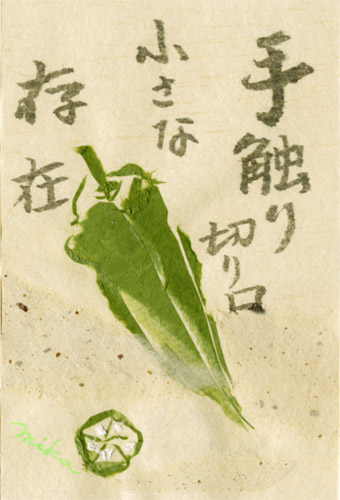 手触り
切り口
小さな
存在
mika